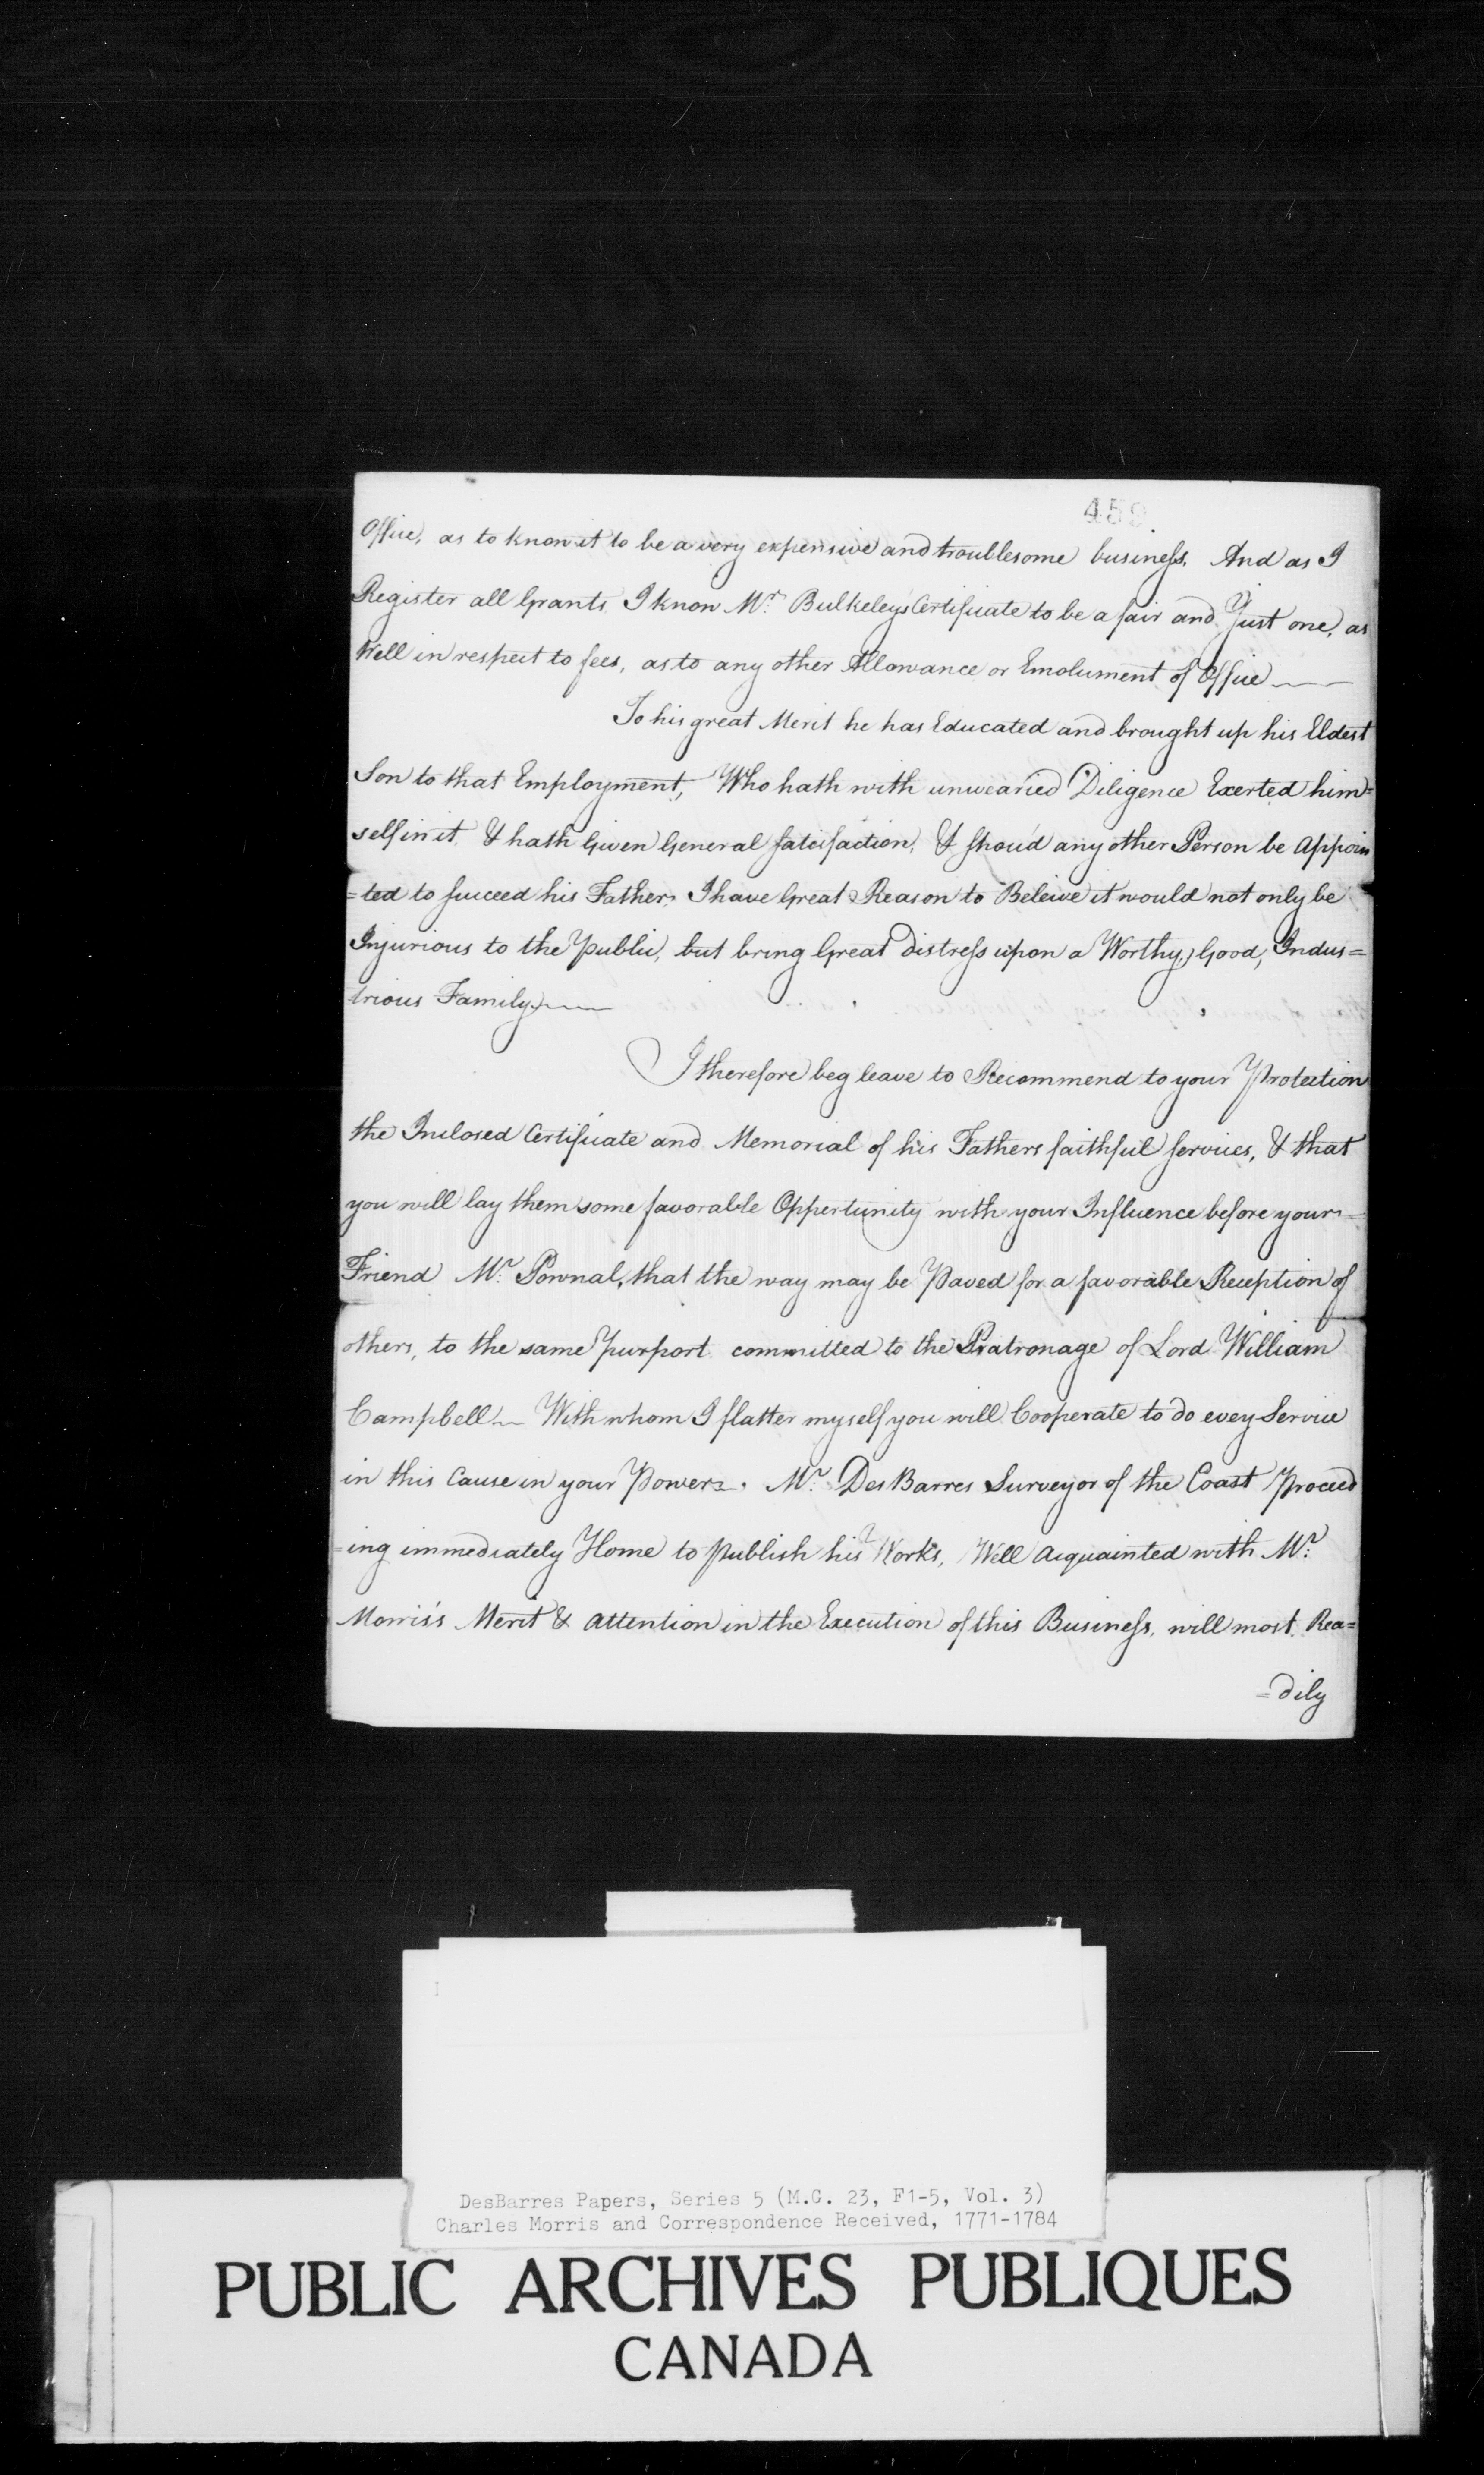 459
Office, as to know it to be a very expensive and troublesome business. And as I
Register all Grants I know Mr. Bulkeley's Certificate to be a fair and Just one, as
Well in respect to fees, as to any other Allowance or Emolument of Office
To his great Merit he has Educated and brought up his Eldest
Son to that Employment, Who hath with unwearied Diligence Exerted him=
self in it & hath Given General Satisfaction, & Shou'd any other Person be Appoin
=ted to Succeed his Father, I have Great Reason to Beleive it would not only be
Injurious to the Public, but bring Great distress upon a Worthy, Good, Indus=
trious Family
I therefore beg leave to Recommend to your Protection
the Inclosed Certificate and Memorial of his Fathers faithful Services, & that
you will lay them some favorable Oppertunity with your Influence before your
Friend Mr. Pownal, that the way may be Paved for a favorable Reception of
others, to the same Purport committed to the Patronage of Lord William
Campbell — With whom I flatter myself you will Cooperate to do evey Service
in this Cause in your Power. Mr. DesBarres Surveyor of the Coast Proceed
=ing immediately Home to Publish his Works, Well Acquainted with Mr.
Morris's Merit & Attention in the Execution of this Business, will most Rea=
=dily
DesBarres Papers, Series 5 (M.G. 23, F1-5, Vol. 3)
Charles Morris and Correspondence Received, 1771-1784
PUBLIC ARCHIVES PUBLIQUES
CANADA